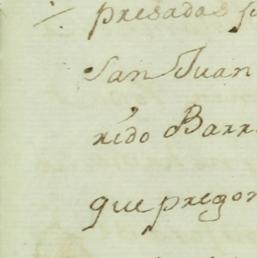 presadas
San Juan
rido Barr
que pregon